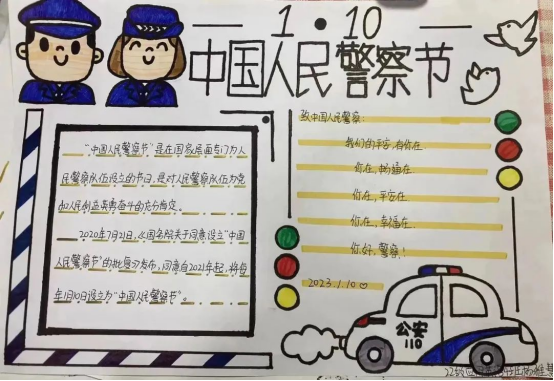 1·10
中国人民警察节
"中国人民警察节"是在国家层面专门为人
民警察队伍设立的节日，是对人民警察队伍为党
和人民利益英勇奋斗的充分肯定。
2020年7月21日，国务院关于同意设立"中国
人民警察节"的批复发布，同意自2021年起，将每
年1月10日设立为"中国人民警察节"。
致中国人民警察：
我们的平安，有你在
你在，畅通在
你在，平安在
你在，幸福在
你好，警察！
2023.1.10
公安
110